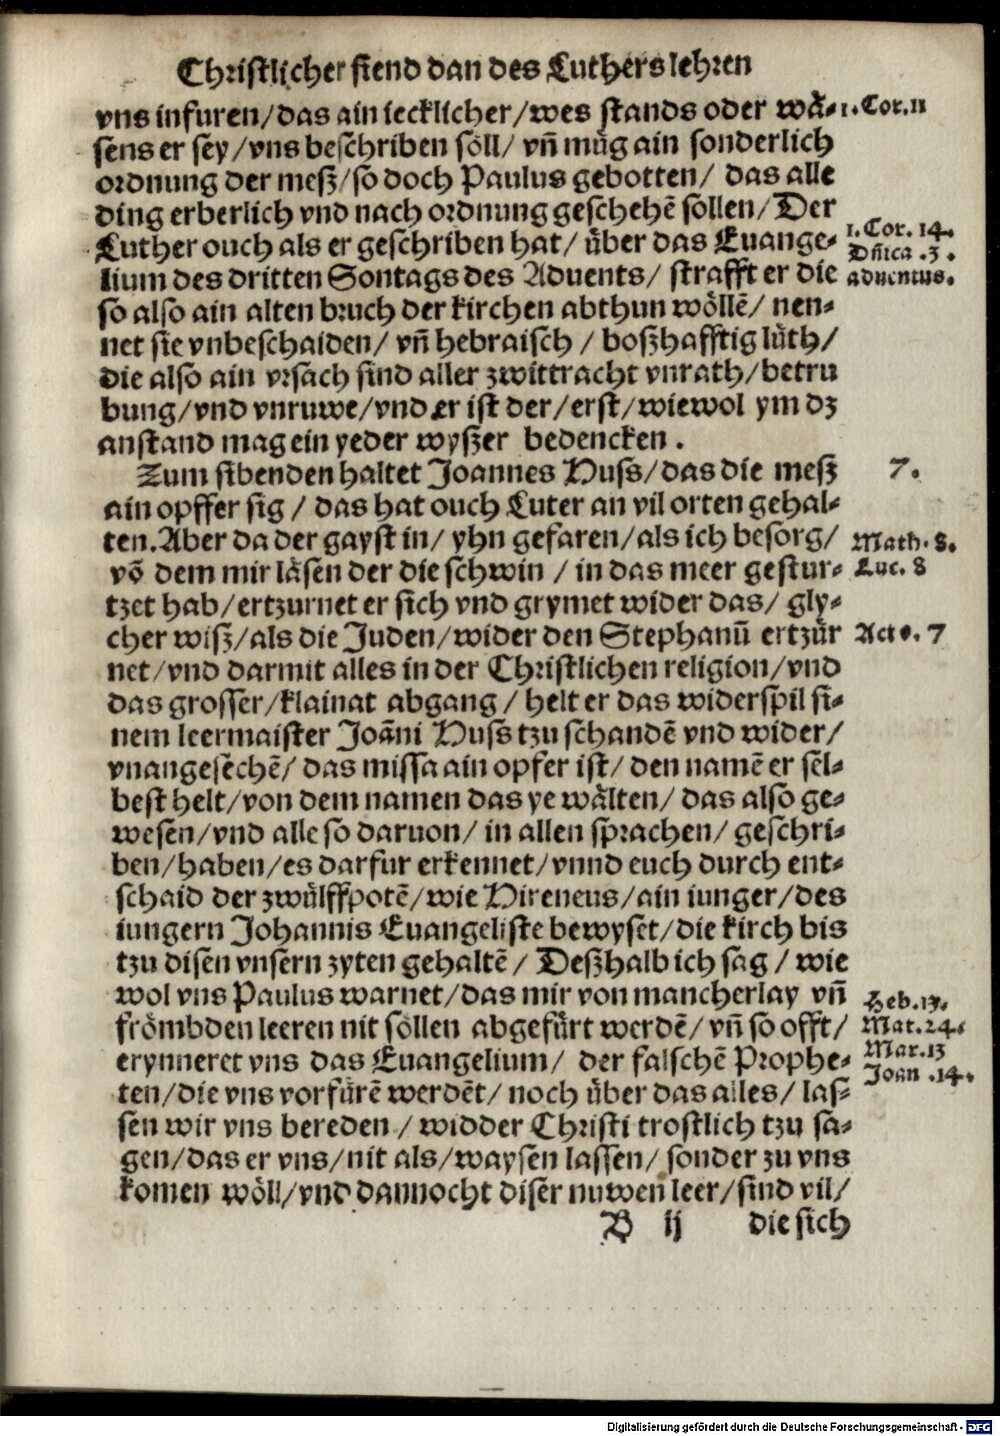 Christlicher siend dan des Luthers lehren
vns infuren/das ain iecklicher/wes stands oder wå⸗ 1.Cor.11
sens er sey/vns beschriben söll/ vñ můg ain sonderlich
ordnung der mesz/so doch Paulus gebotten/ das alle
ding erberlich vnd nach ordnung geschehē sollen/Der
Luther ouch als er geschriben hat/ über das Euange⸗ 1.Cor. 14.
Dñica .3.
lium des dritten Sontags des Aduents/ strafft er die aduentus.
so also ain alten bruch der kirchen abthun wöllē/ nen⸗
net sie vnbeschaiden/ vñ hebraisch / boszhafftig lüth/
die also ain vrsach sind aller zwittracht vnrath/betru
bung/vnd vnruwe/vnd er ist der/erst/wiewol ym dz
anstand mag ein yeder wyszer bedencken .
Zum sibenden haltet Joannes Huss/das die mesz 7.
ain opffer sig / das hat ouch Luter an vil orten gehal⸗
ten.Aber da der gayst in/ yhn gefaren/als ich besorg/ Math. 8.
vō dem mir låsen der die schwin / in das meer gestur⸗ Luc. 8
tzet hab/ertzurnet er sich vnd grymet wider das/ gly⸗
cher wisz/als die Juden/wider den Stephanū ertzür Act. 7
net/vnd darmit alles in der Christlichen religion/vnd
das grosser/klainat abgang / helt er das widerspil si⸗
nem leermaister Joāni Huss tzu schandē vnd wider/
vnangesechē/ das missa ain opfer ist/ den namē er sel⸗
best helt/von dem namen das ye wålten/ das also ge⸗
wesen/vnd alle so daruon/ in allen sprachen/ geschri⸗
ben/haben/es darfur erkennet/vnnd euch durch ent⸗
schaid der zwülffpotē/wie Hireneus/ain iunger/des
iungern Johannis Euangeliste bewyset/die kirch bis
tzu disen vnsern zyten gehaltē/ Deszhalb ich sag / wie
wol vns Paulus warnet/das mir von mancherlay vñ Heb.13.
frömbden leeren nit söllen abgefürt werdē/ vñ so offt/ Mat.24.
erynneret vns das Euangelium/ der falschē Prophe⸗ Mar.13
ten/die vns vorfürē werdēt/ noch über das alles/ las⸗ Joan .14.
sen wir vns bereden / widder Christi trostlich tzu sa⸗
gen/das er vns/nit als/waysen lassen/ sonder zu vns
komen wöll/vnd dannocht diser nuwen leer/sind vil/
B ij die sich
Digitalisierung gefördert durch die Deutsche Forschungsgemeinschaft - DFG